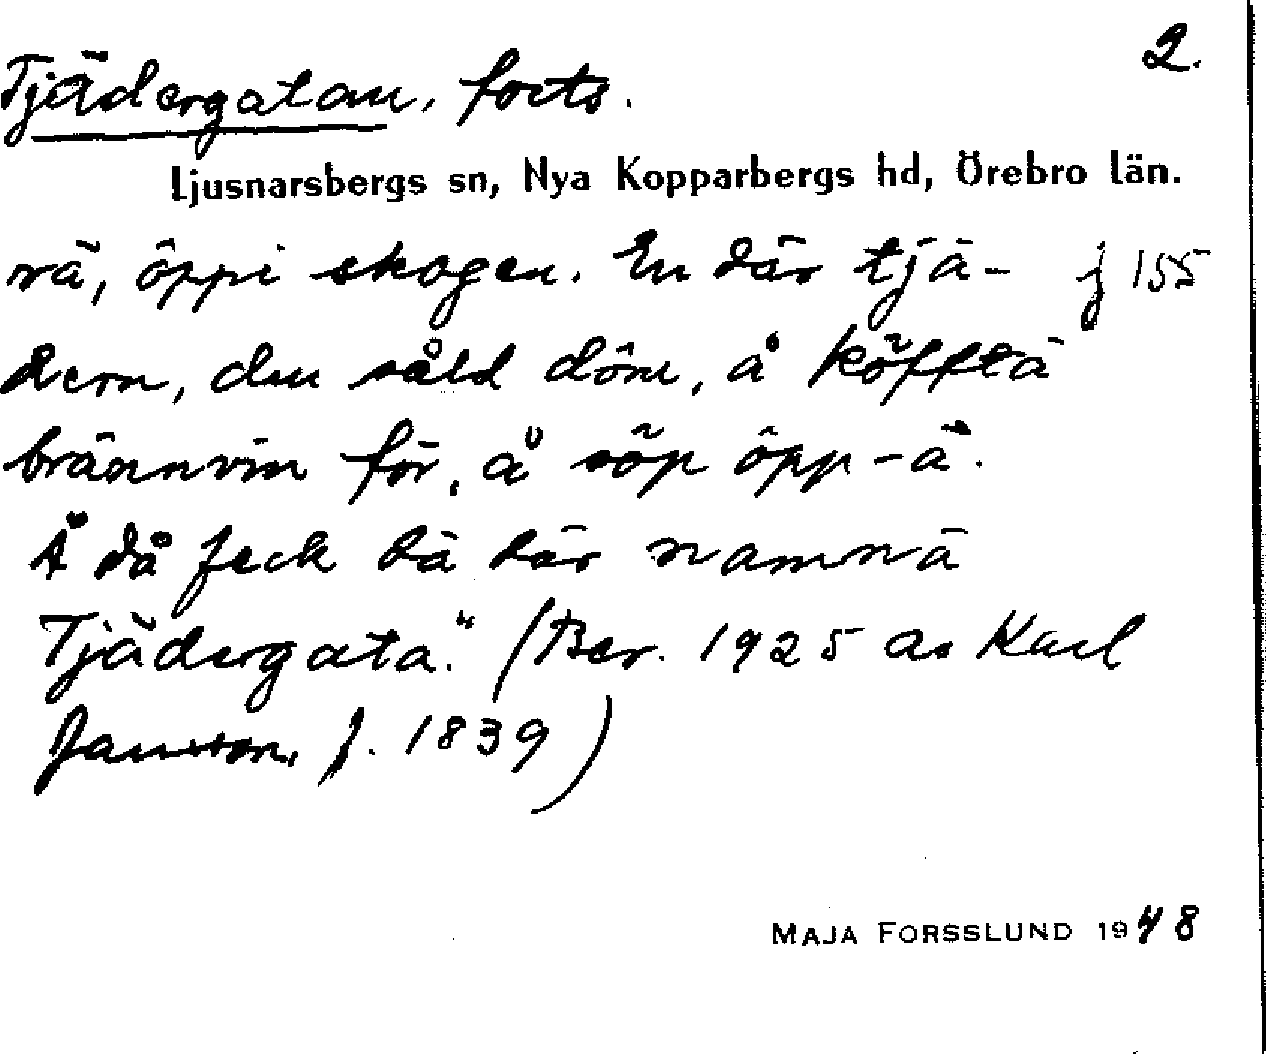 2.
Tjädergatan, forts.
Ljusnarsbergs sn, Nya Kopparbergs hd, Örebro län.
vä, öppi skogen. En där tjä- j 155
dern, den såld döm, å köffta
brännvin för, å söp öpp-ä.
Å då feck dä där namnä
Tjädergata." (Ber. 1925 av Karl
Jansson, f. 1839)
MAJA FORSSLUND 1948